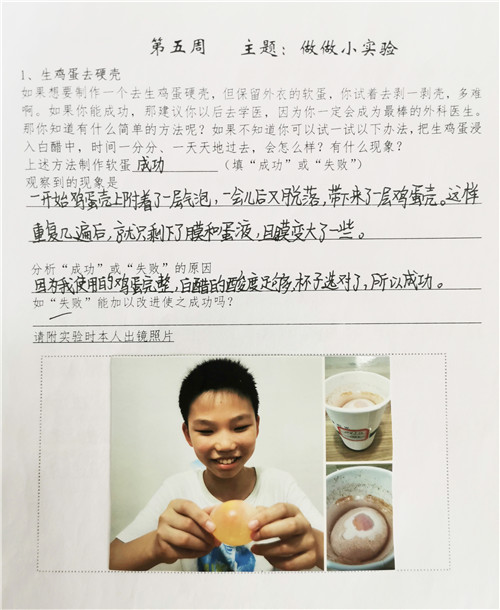 第五周 主题：做做小实验
1、生鸡蛋去硬壳
如果想要制作一个去生鸡蛋硬壳，但保留外衣的软蛋，你试着去剥一剥壳，多难
啊。如果你能成功，那建议你以后去学医，因为你一定会成为最棒的外科医生。
那你知道有什么简单的方法呢？如果不知道你可以试一试以下办法，把生鸡蛋浸
入白醋中，时间一分分、一天天地过去，会怎么样？有什么现象？
上述方法制作软蛋 成功 （填“成功”或“失败”）
观察到的现象是
一开始鸡蛋壳上附着了一层气泡，一会儿后又脱落，带下来了一层鸡蛋壳。这样
重复几遍后，就只剩下了膜和蛋液，且膜变大了一些。
分析“成功”或“失败”的原因
因为我使用的鸡蛋完整，白醋的酸度足够，杯子选对了，所以成功。
如“失败”能加以改进使之成功吗？
请附实验时本人出镜照片